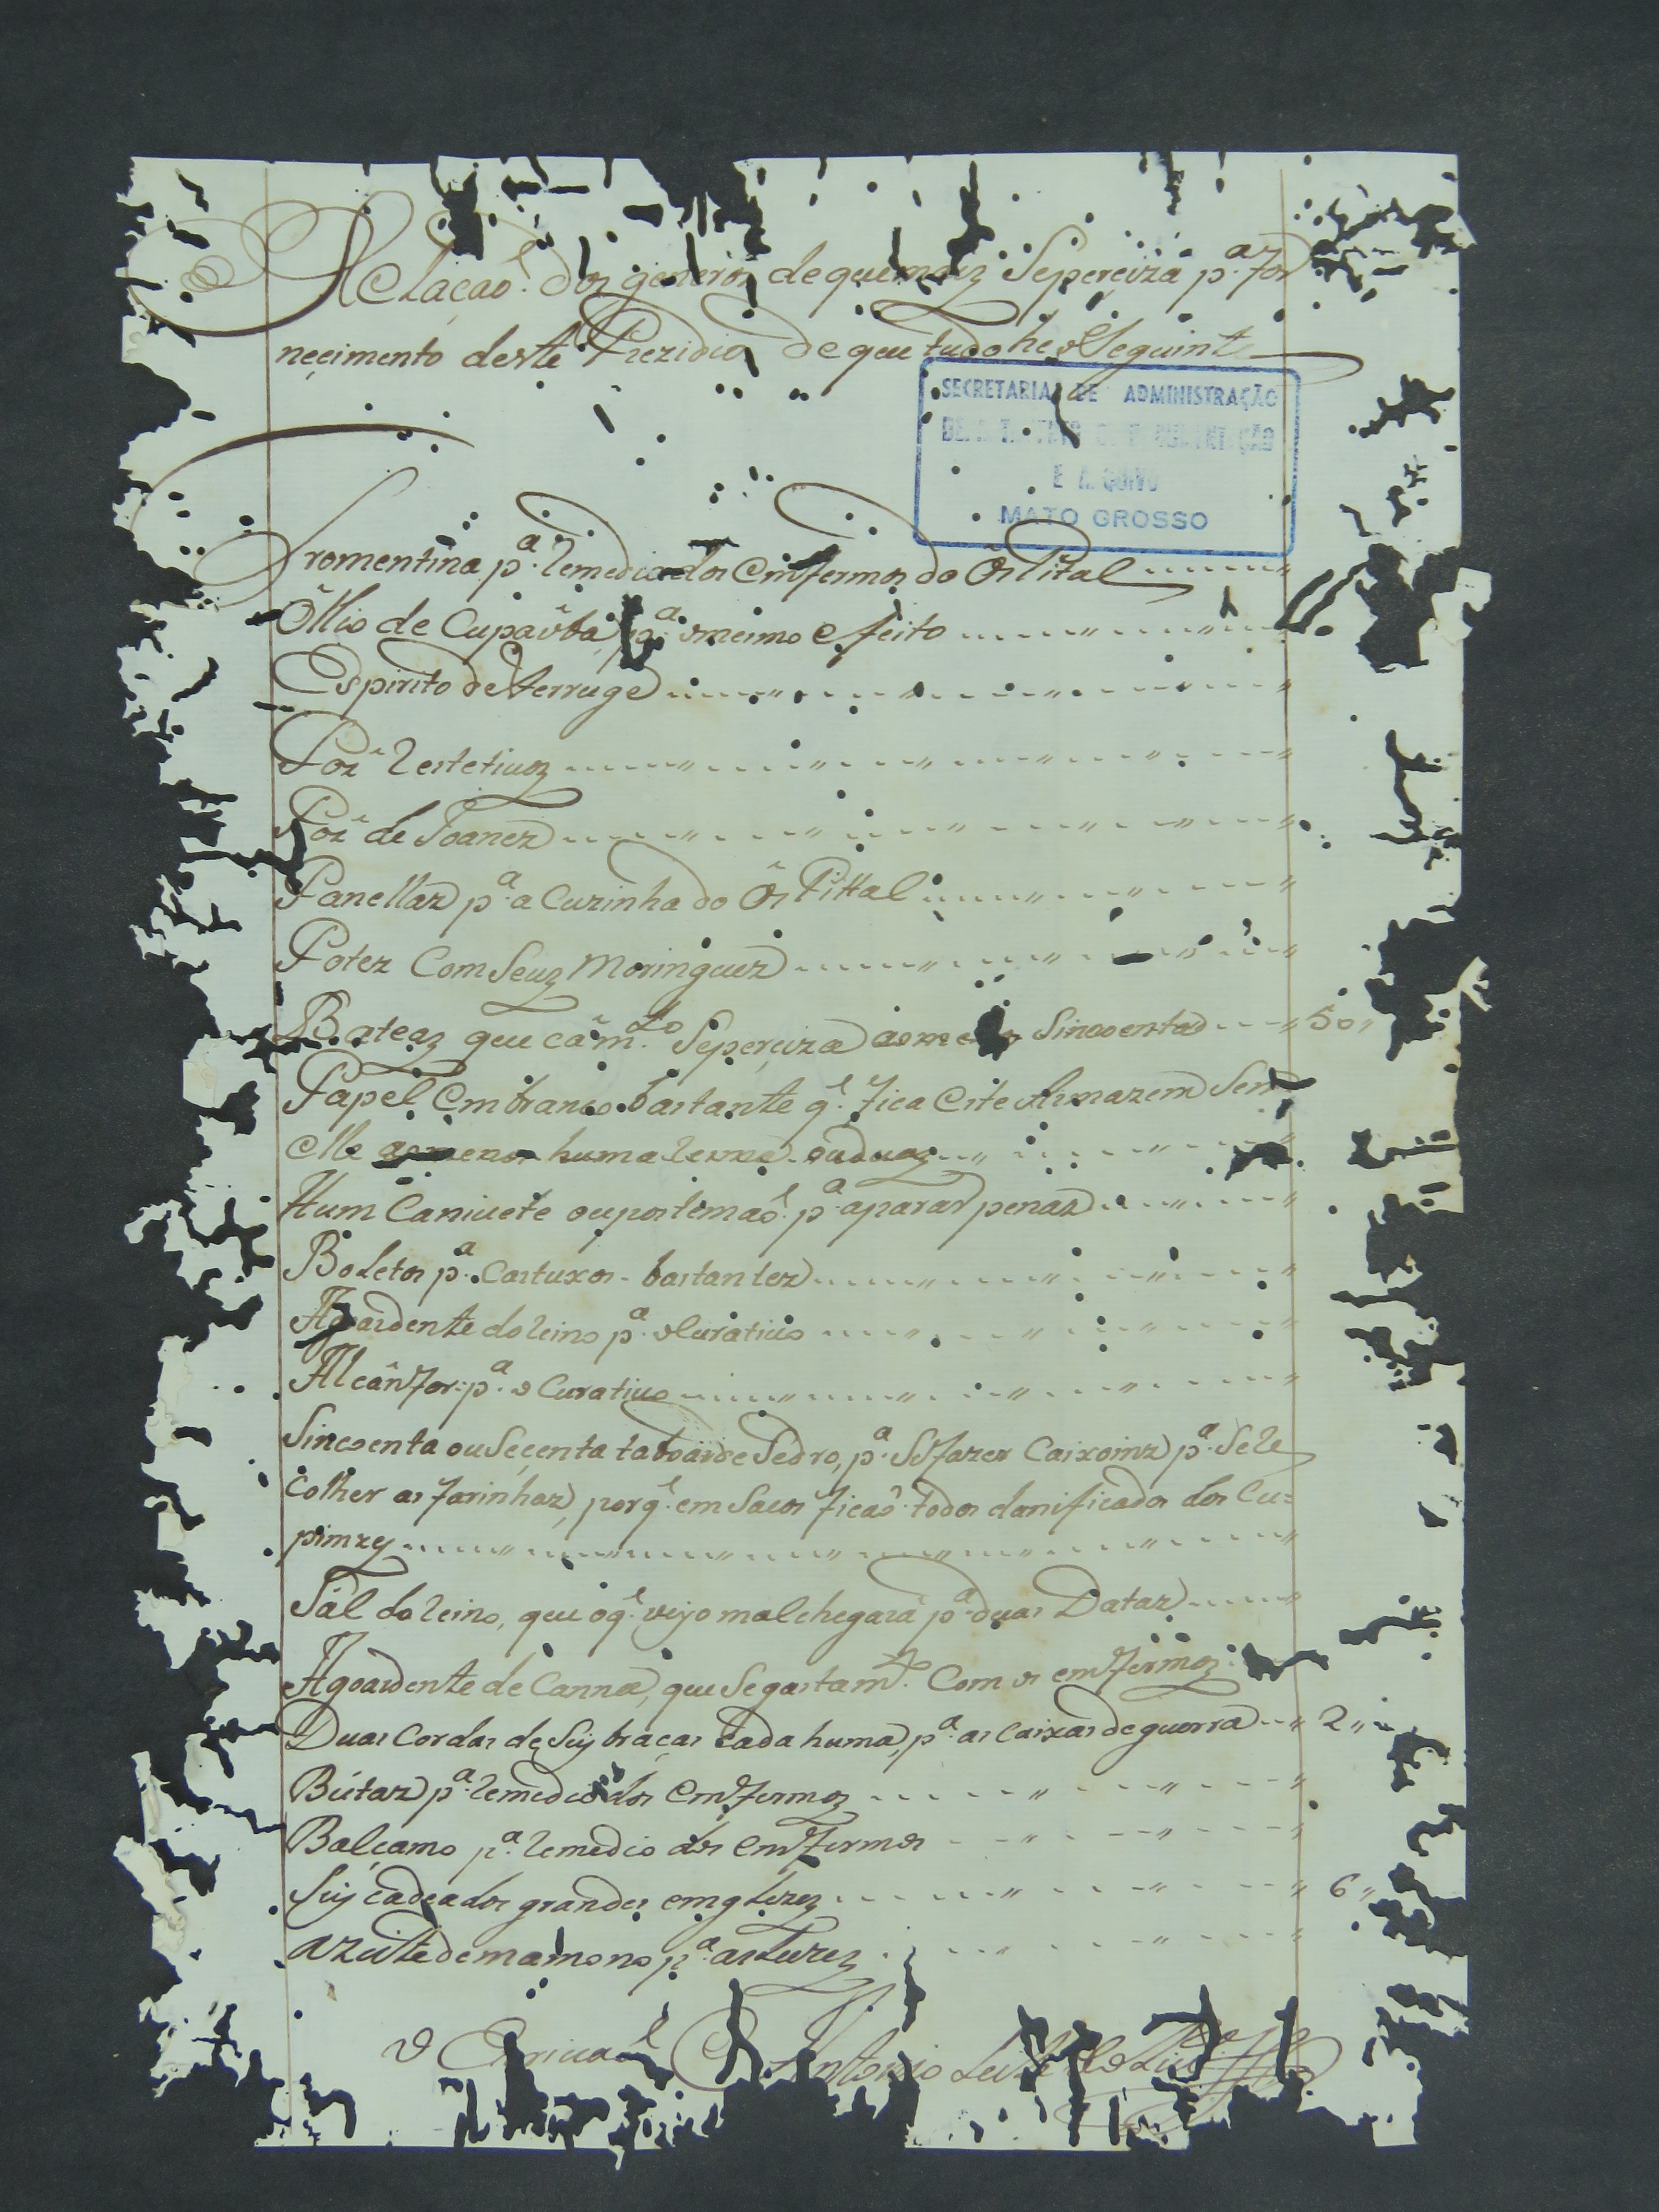 Relaçaõ. dos generos de que mais Sepereciza pª. for
neçimento deste Prezidio, de que tudo he oSeguinte
SECRETARIA DE ADMINISTRAÇÃO
E ARQUIVO
MATO GROSSO
Tromentina pª. Remedio dos Emfermos do OsPital
Ollio de Cupaûba, pª. omesmo efeito
Espirito de Ferruge
Poz Restetiuos
Poz de Joanez
Panellas pª. a Cuzinha do OsPittal
Potez Com Seus Moringuez
Bateas que cá mto. Sepereciza ao menos Sincoenta 50
Papel Em branco bastante q. fica Este Armazem Sem
elle ao menos huma resma ou duas
Hum Caniuete ou postemaõ. pª. aparar penas
Boletos pª. Cartuxos bastantez
Agoardente do Reino pª. oCuratiuo
Alcânfor pª. o Curatiuo
Sincoenta ou Seçenta taboas de Sedro, pª. Sefazer Caixoins pª. Sere
colher as farinhas, porq. em Sacos ficaõ. todos danificados dos Cu=
pimzes
Sal do Reino, que oq. veyo mal chegará pª. duas Datas
Agoardente de Canna, que Segasta m.to Com os emfermos
Duas Cordas de Seis braças Cada huma, pª. as Caixas de guerra 2
Bútas pª. Remedio dos Emfermos
Balçamo pª. Remedio dos Emfermos
Seis Cadeados grandes emglezes 6
azeite de mamono pª. as Luzes
O Escriuaõ Antonio Leite